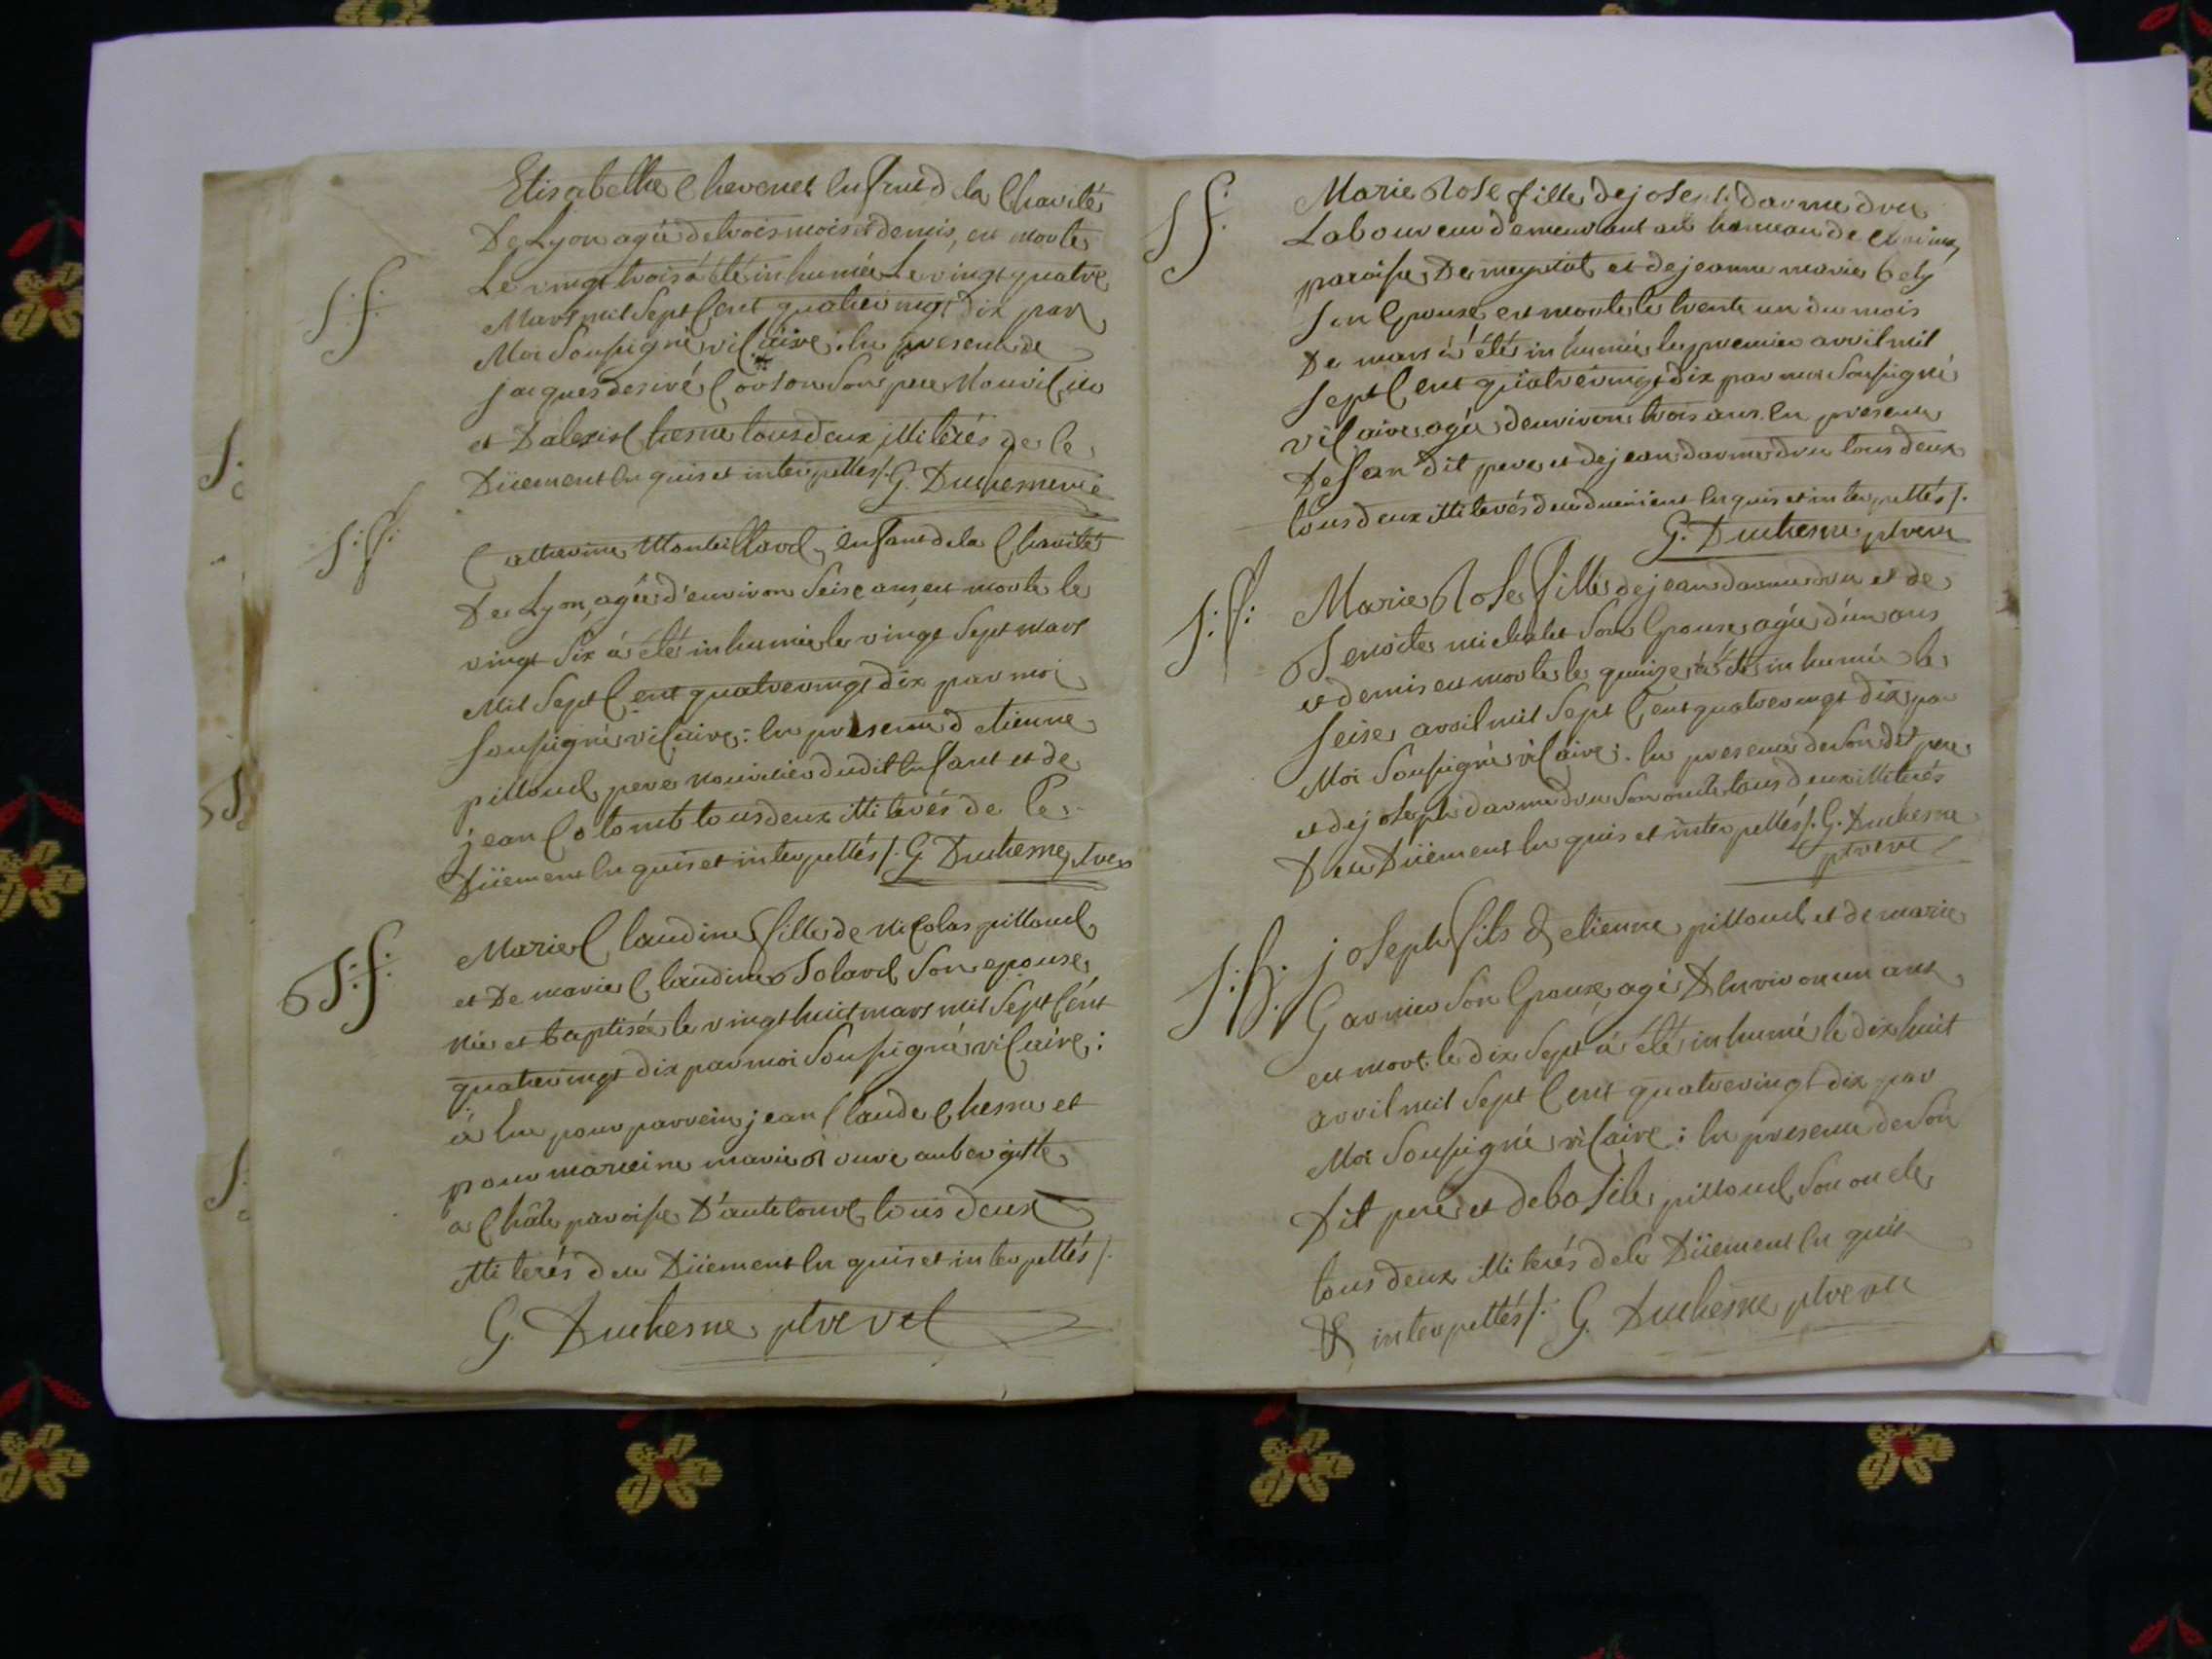 Elisabethe Chevenet enfant d la Charité
De Lyon agée de trois mois et demis, est morte
S:f:
Le vingt trois à été inhumée Le vingt quatre
Mars mil Sept Cent quatrevingt dix par
Moi Soussigné viCaire: En presence de
jacques desiré Corton Son pere Nouricier
et D'alexis Chesne tous deux illiterés de Ce
Düement Enquis et interpellés /. G. Duchesne vic
S:f:
Catherine Montillard, Enfant de la Charité
De Lyon, agée d'environ Seise ans, est morte le
vingt Six à été inhumée le vingt Sept mars
Mil Sept Cent quatrevingt dix par moi
Soussigné viCaire: En presence d etienne
pilloud pere nouricier dudit Enfant et de
jean Colomb tous deux illiterés de Ce
Düement Enquis et interpellés /. G. Duchesne ptre
B S:f:
Marie Claudine fille de NiColas pilloud
et De marie Claudine Solard Son epouse,
Née et baptisée le vingt huit mars mil Sept Cent
quatrevingt dix par moi Soussigné viCaire:
à Eu pour parrein jean Claude Chesne et
pour marreine marie aubergiste
a Châle paroisse D'autecourt, tous deux
illiterés d ece Düement Enquis et interpellés /.
G. Duchesne ptre viC
S f:
Marie Rose fille de joseph darmedru
Laboureur demeurant au hameau de
paroisse De meyriat et de jeanne marie bely
Son Epouse est morte le trente un du mois
De mars à été inhumée le premier avril mil
Sept Cent quatrevingt dix par moi Soussigné
viCaire, agée d'environ trois ans. En presence
De Son dit pere et de jean darmedru tous deux
tous deux illiterés de ce duement Enquis et interpellés /.
G. Duchesne ptre vic
S:f:
Marie Rose fille de jean darmedru et de
Benoite michalet Son Epouse, agée d'un ans
et demis est morte le quinze à été inhumée le
Seise avril mil Sept Cent quatrevingt dix par
Moi Soussigné viCaire: En presence de Son dit pere
et de joseph darmedru Son oncle tous deux illiterés
D ece Düement Enquis et interpellés /. G. Duchesne
ptre vic
S:f:
joseph fils D, etienne pilloud et de marie
Garnier Son Epouse, agé D'Environ un ans
est mort le dix Sept à été inhumé le dix huit
avril mil Sept Cent quatrevingt dix par
Moi Soussigné viCaire: En presence de Son
Dit pere et de baSile pilloud Son oncle,
tous deux illiterés de Ce Düement Enquis
& interpellés /. G. Duchesne ptre vic